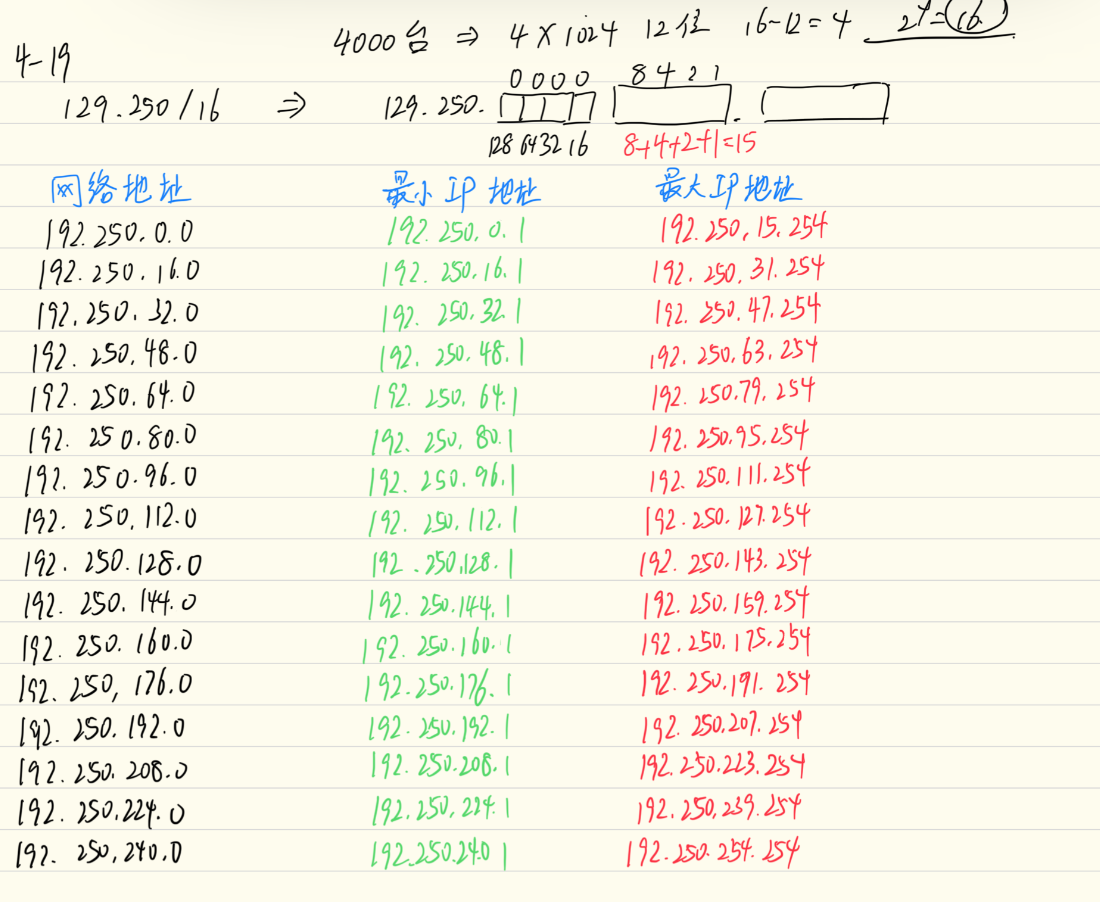 4000台 ⇒ 4×1024 12位 16-12=4 2⁴=16
4-19
0000 8421
129.250/16 ⇒ 129.250. .
128 64 32 16 8+4+2+1=15
网络地址 最小IP地址 最大IP地址
192.250.0.0 192.250.0.1 192.250.15.254
192.250.16.0 192.250.16.1 192.250.31.254
192.250.32.0 192.250.32.1 192.250.47.254
192.250.48.0 192.250.48.1 192.250.63.254
192.250.64.0 192.250.64.1 192.250.79.254
192.250.80.0 192.250.80.1 192.250.95.254
192.250.96.0 192.250.96.1 192.250.111.254
192.250.112.0 192.250.112.1 192.250.127.254
192.250.128.0 192.250.128.1 192.250.143.254
192.250.144.0 192.250.144.1 192.250.159.254
192.250.160.0 192.250.160.1 192.250.175.254
192.250.176.0 192.250.176.1 192.250.191.254
192.250.192.0 192.250.192.1 192.250.207.254
192.250.208.0 192.250.208.1 192.250.223.254
192.250.224.0 192.250.224.1 192.250.239.254
192.250.240.0 192.250.240 1 192.250.254.254